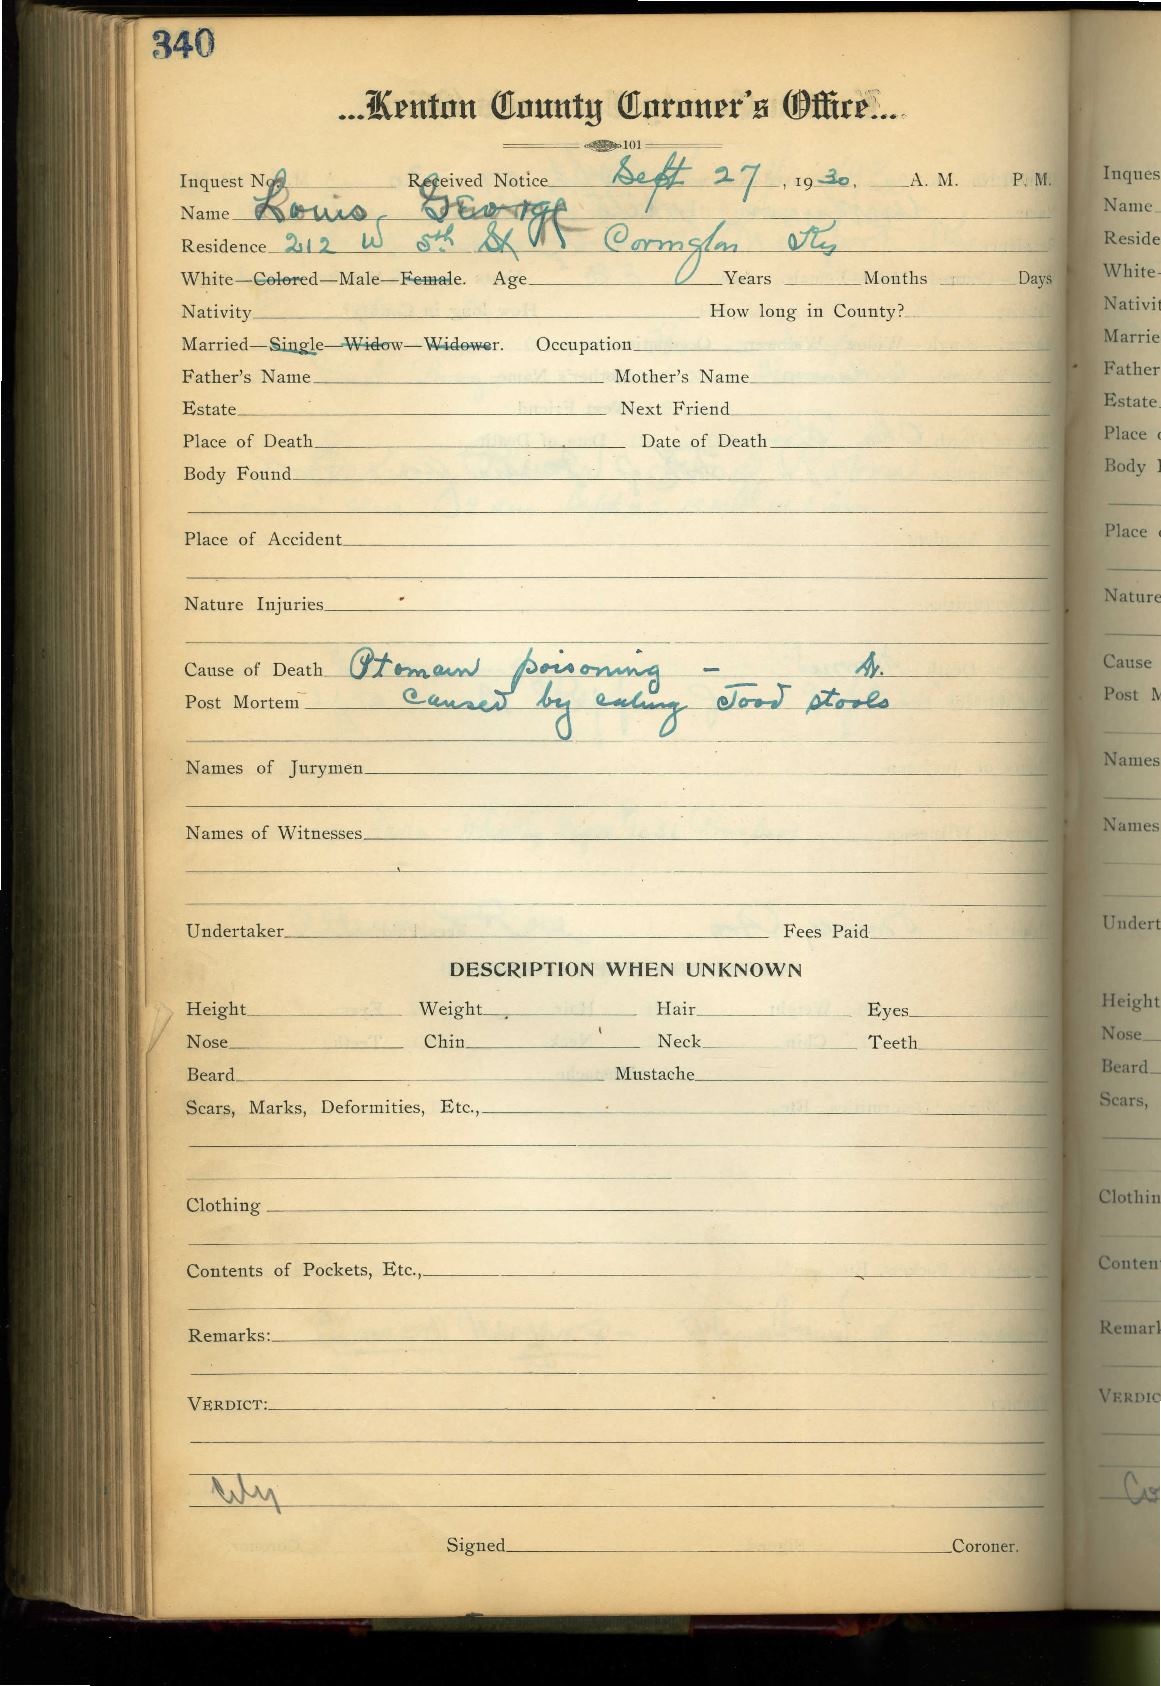 340
...Kenton County Coroner's Office...
101
Inquest No. Received Notice Sept 27, 1930, A. M. P. M.
Name Louis George
Residence 212 W 5th St Covington Ky
White—Colored—Male—Female. Age Years Months Days
Nativity How long in County?
Married—Single—Widow—Widower. Occupation
Father's Name Mother's Name
Estate Next Friend
Place of Death Date of Death
Body Found
Place of Accident
Nature Injuries
Cause of Death Ptomain poisoning —
Post Mortem caused by eating Tood stools
Names of Jurymen
Names of Witnesses
Undertaker Fees Paid
DESCRIPTION WHEN UNKNOWN
Height Weight Hair Eyes
Nose Chin Neck Teeth
Beard Mustache
Scars, Marks, Deformities, Etc.,
Clothing
Contents of Pockets, Etc.,
Remarks:
VERDICT:
City
Signed Coroner.
Inques
Name
Reside
White-
Nativit
Marrie
Father
Estate
Place
Body
Place
Nature
Cause
Post M
Names
Names
Undert
Height
Nose
Beard
Scars,
Clothin
Conten
Remark
VERDIC
Co